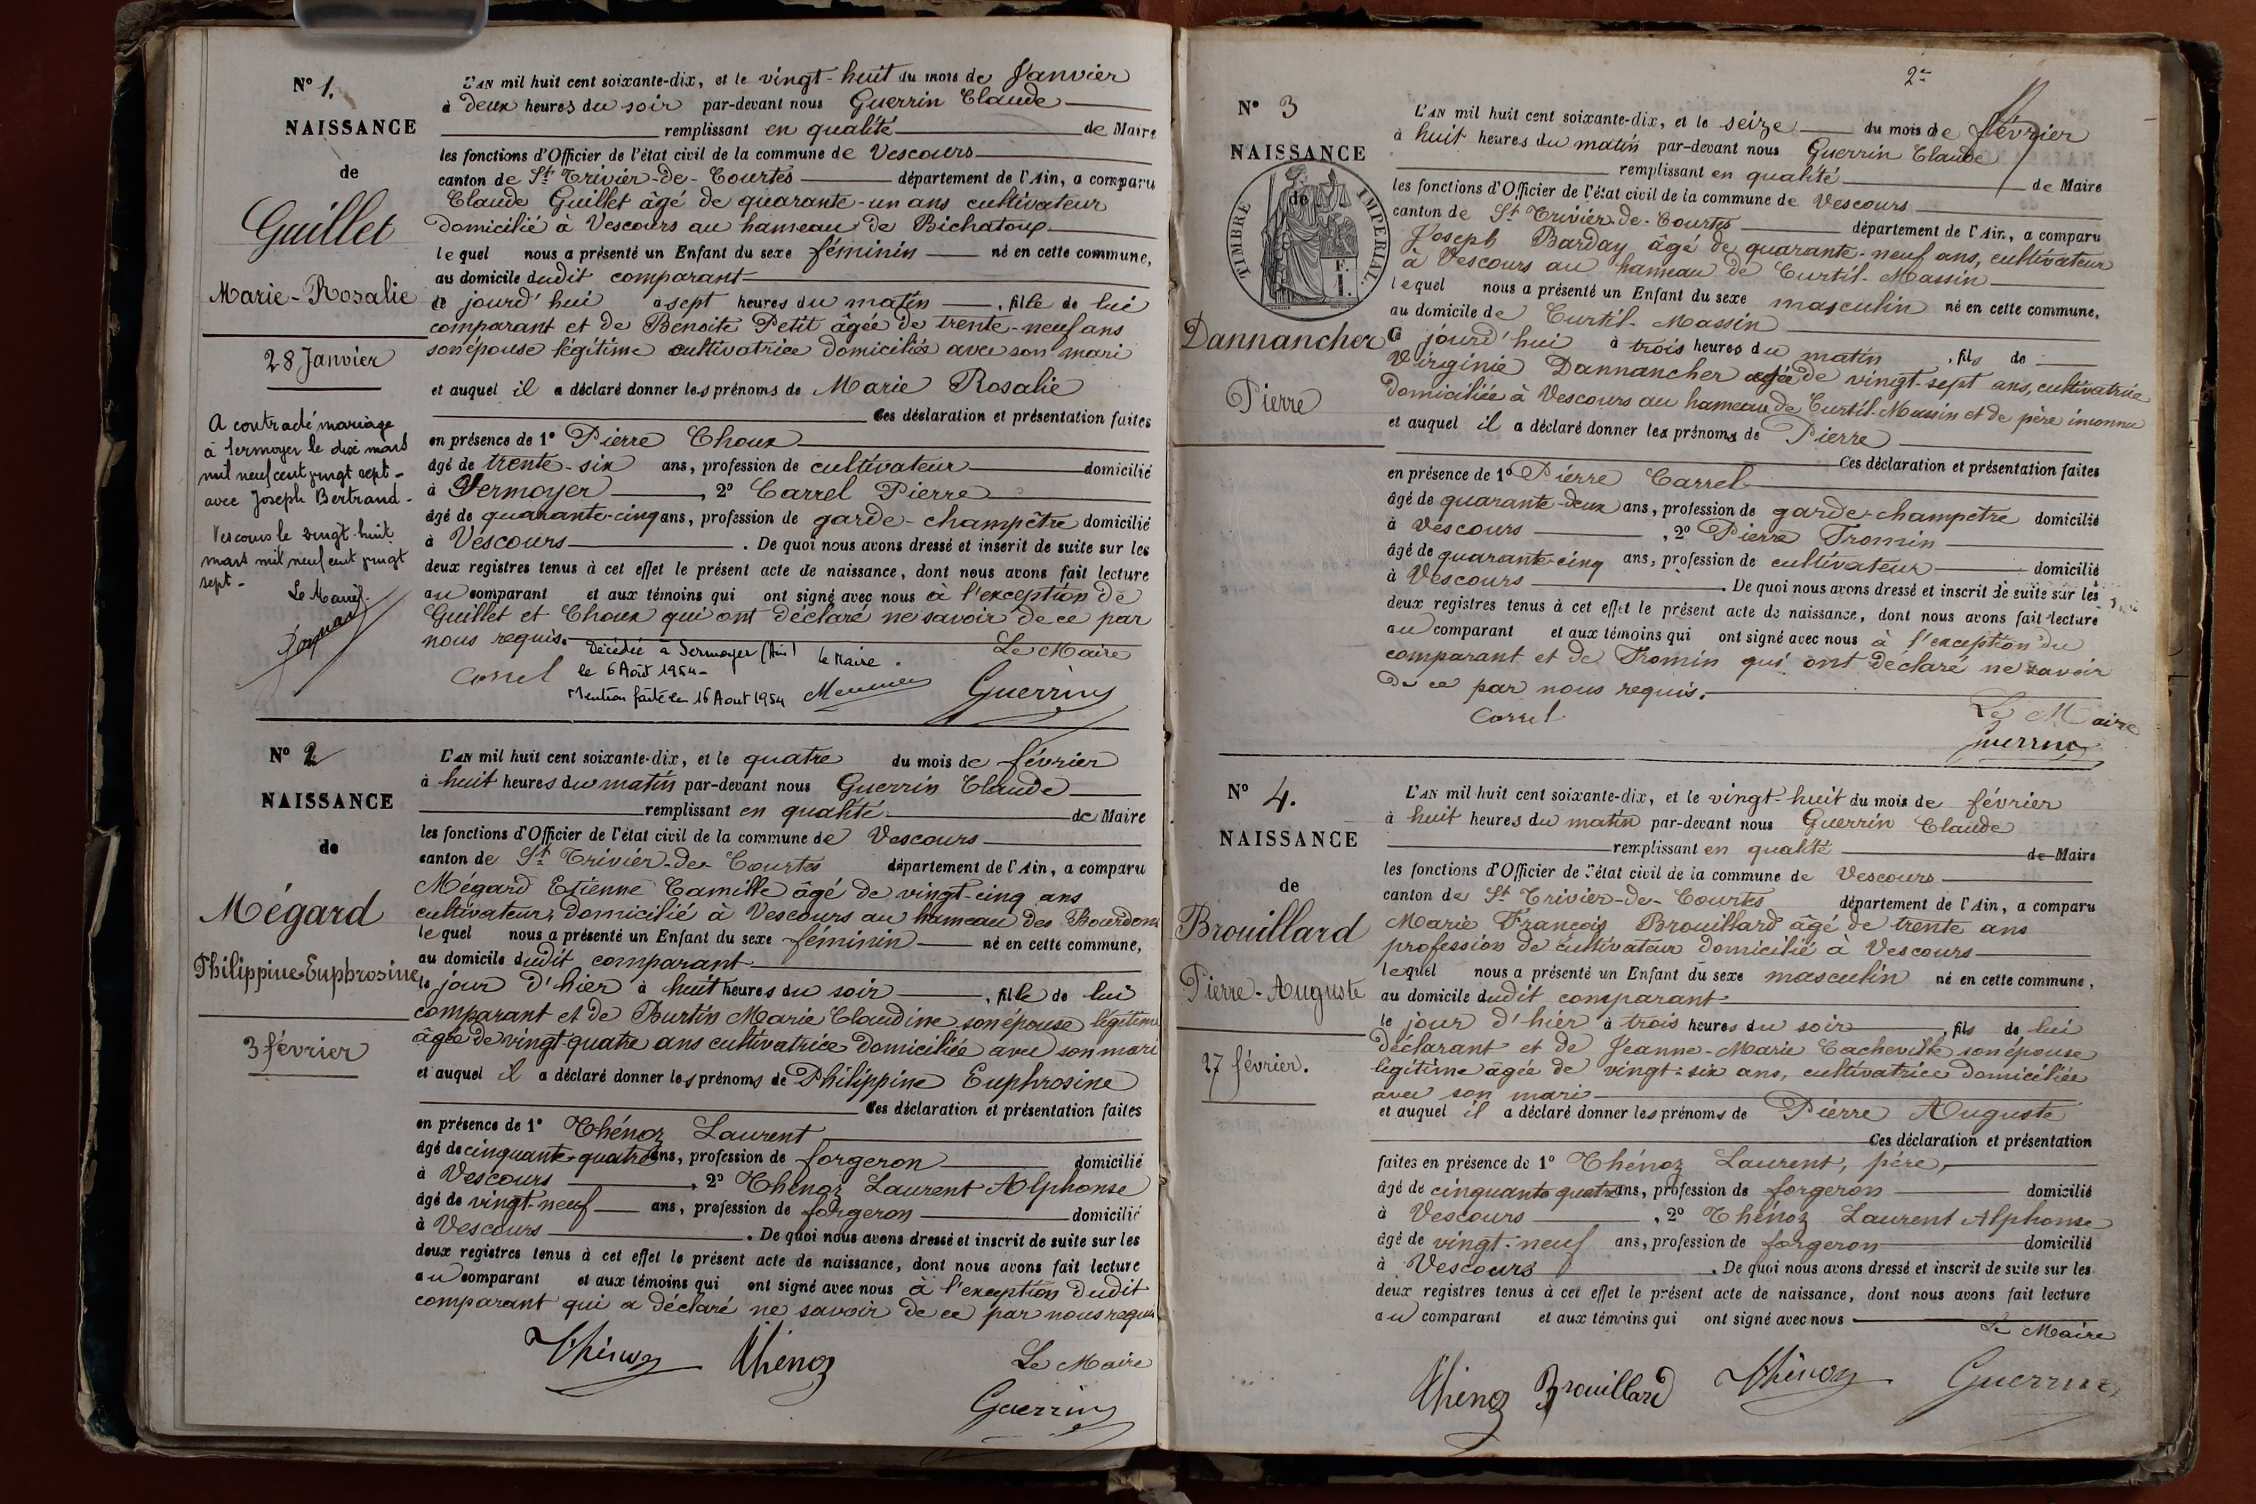 N° 1.
NAISSANCE
de
Guillet
Marie-Rosalie
28 Janvier
A contracté mariage
à Sermoyer le dix mars
mil neuf cent vingt sept -
avec Joseph Bertrand -
Vescours le vingt-huit
mars mil neuf cent vingt
sept -
Le Maire
L'AN mil huit cent soixante-dix, et le vingt-huit du mois de Janvier
à deux heures du soir par-devant nous Guerrin Claude
remplissant en qualité de Maire
les fonctions d'Officier de l'état civil de la commune de Vescours
canton de St Trivier-de-Courtes département de l'Ain, a comparu
Claude Guillet âgé de quarante-un ans cultivateur
domicilié à Vescours au hameau de Bichatoux
lequel nous a présenté un Enfant du sexe féminin né en cette commune,
au domicile dudit comparant
ce jourd'hui à sept heures du matin, fille de lui
comparant et de Benoite Petit âgée de trente-neuf ans
son épouse légitime cultivatrice domiciliée avec son mari
et auquel il a déclaré donner les prénoms de Marie Rosalie
Ces déclaration et présentation faites
en présence de 1° Pierre Choux
âgé de trente-six ans, profession de cultivateur domicilié
à Sermoyer, 2° Carrel Pierre
âgé de quarante-cinq ans, profession de garde-champêtre domicilié
à Vescours. De quoi nous avons dressé et inscrit de suite sur les
deux registres tenus à cet effet le présent acte de naissance, dont nous avons fait lecture
au comparant et aux témoins qui ont signé avec nous à l'exception de
Guillet et Choux qui ont déclaré ne savoir de ce par
nous requis.
Le Maire
Décédée à Sermoyer (Ain)
le 6 Août 1954 -
Mention faite le 16 Aout 1954
le Maire.
Carrel
Guerrin
N° 2
NAISSANCE
de
Mégard
Philippine-Euphrosine
3 février
L'AN mil huit cent soixante-dix, et le quatre du mois de février
à huit heures du matin par-devant nous Guerrin Claude
remplissant en qualité de Maire
les fonctions d'Officier de l'état civil de la commune de Vescours
canton de St Trivier-de-Courtes département de l'Ain, a comparu
Mégard Etienne Camille âgé de vingt-cinq ans
cultivateur, domicilié à Vescours au hameau des Bourdons
lequel nous a présenté un Enfant du sexe féminin né en cette commune,
au domicile dudit comparant
le jour d'hier à huit heures du soir, fille de lui
comparant et de Burtin Marie Claudine son épouse légitime
âgée de vingt-quatre ans cultivatrice domiciliée avec son mari
et auquel il a déclaré donner les prénoms de Philippine Euphrosine
Ces déclaration et présentation faites
en présence de 1° Thénoz Laurent
âgé de cinquante-quatre ans, profession de forgeron domicilié
à Vescours, 2° Thénoz Laurent Alphonse
âgé de vingt-neuf ans, profession de forgeron domicilié
à Vescours. De quoi nous avons dressé et inscrit de suite sur les
deux registres tenus à cet effet le présent acte de naissance, dont nous avons fait lecture
au comparant et aux témoins qui ont signé avec nous à l'exception dudit
comparant qui a déclaré ne savoir de ce par nous requis
Thénoz Thenoz Le Maire
Guerrin
2e
N° 3
NAISSANCE
de
TIMBRE IMPERIAL.
F.
1.
Dannancher
Pierre
L'AN mil huit cent soixante-dix, et le seize du mois de février
à huit heures du matin par-devant nous Guerrin Claude
remplissant en qualité de Maire
les fonctions d'Officier de l'état civil de la commune de Vescours
canton de St Trivier-de-Courtes département de l'Ain, a comparu
Joseph Barday âgé de quarante-neuf ans, cultivateur
à Vescours au hameau de Curtil-Massin
lequel nous a présenté un Enfant du sexe masculin né en cette commune,
au domicile de Curtil-Massin
ce jourd'hui à trois heures du matin, fils de
Virginie Dannancher agée de vingt-sept ans, cultivatrice
domiciliée à Vescours au hameau de Curtil-Massin et de père inconnu
et auquel il a déclaré donner les prénoms de Pierre
Ces déclaration et présentation faites
en présence de 1° Pierre Carrel
âgé de quarante-deux ans, profession de garde-champêtre domicilié
à Vescours, 2° Pierre Fromin
âgé de quarante-cinq ans, profession de cultivateur domicilié
à Vescours. De quoi nous avons dressé et inscrit de suite sur les
deux registres tenus à cet effet le présent acte de naissance, dont nous avons fait lecture
au comparant et aux témoins qui ont signé avec nous à l'exception du
comparant et de Fromin qui ont déclaré ne savoir
de ce par nous requis.
Carrel Le Maire
Guerrin
N° 4.
NAISSANCE
de
Brouillard
Pierre-Auguste
27 février.
L'AN mil huit cent soixante-dix, et le vingt-huit du mois de février
à huit heures du matin par-devant nous Guerrin Claude
remplissant en qualité de Maire
les fonctions d'Officier de l'état civil de la commune de Vescours
canton de St Trivier-de-Courtes département de l'Ain, a comparu
Marie François Brouillard âgé de trente ans
profession de cultivateur domicilié à Vescours
lequel nous a présenté un Enfant du sexe masculin né en cette commune,
au domicile dudit comparant
le jour d'hier à trois heures du soir, fils de lui
déclarant et de Jeanne-Marie Cacheville son épouse
légitime âgée de vingt-six ans, cultivatrice domiciliée
avec son mari
et auquel il a déclaré donner les prénoms de Pierre Auguste
Ces déclaration et présentation
faites en présence de 1° Thénoz Laurent, père,
âgé de cinquante quatre ans, profession de forgeron domicilié
à Vescours, 2° Thénoz Laurent Alphonse
âgé de vingt-neuf ans, profession de forgeron domicilié
à Vescours. De quoi nous avons dressé et inscrit de suite sur les
deux registres tenus à cet effet le présent acte de naissance, dont nous avons fait lecture
au comparant et aux témoins qui ont signé avec nous
Le Maire
Thenoz Brouillard Thénoz Guerrin